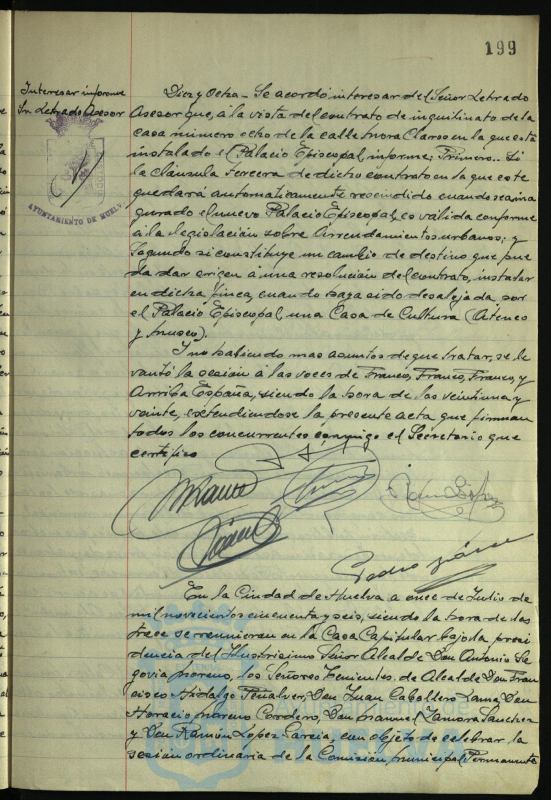 199
Interesar informe
Sr. Letrado Asesor
AYUNTAMIENTO DE HUELV
Diez y Ocho - Se acordó interesar del Señor Letrado
Asesor que, á la vista del contrato de inquilinato de la
casa número ocho de la calle Mora Claros en la que está
instalado el Palacio Episcopal, informe; Primero.. Si
la Cláusula tercera de dicho contrato en la que este
quedará automaticamente rescindido cuando sea inau
gurado el nuevo Palacio Episcopal, es válida conforme
á la legislación sobre Arrendamientos urbanos; y
Segundo si constituye un cambio de destino que pue
da dar origen á una resolución del contrato, instalar
en dicha finca, cuando haya sido desalojada por
el Palacio Episcopal, una Casa de Cultura (Ateneo
y museo).
Y no habiendo mas asuntos de que tratar, se le
vantó la sesión á las voces de Franco, Franco, Franco, y
Arriba España, siendo la hora de las veintiuna y
veinte, extendiendose la presente acta que firman
todos los concurrentes conmigo el Secretario que
certifico
Pedro
En la Ciudad de Huelva a once de Julio de
mil novecientos cincuenta y seis, siendo la hora de las
trece se reunieron en la Casa Capitular bajo la presi
dencia del Ilustrisimo Señor Alcalde Don Antonio Se
govia Moreno, los Señores Tenientes de Alcalde Don Fran
cisco Hidalgo Peñalver, Don Juan Caballero Lama, Don
Horacio Moreno Cordero, Don Manuel Zamora Sanchez
y Don Ramón López García, con objeto de celebrar la
sesión ordinaria de la Comisión Municipal Permanente